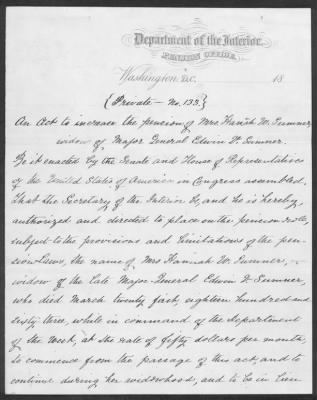 Department of the Interior,
PENSION OFFICE,
Washington, D.C. 18
{Private — No. 133.}
An Act to increase the pension of Mrs. Hannah W. Sumner
widow of Major General Edwin V. Sumner.
Be it enacted by the Senate and House of Representatives
of the United States of America in Congress assembled,
That the Secretary of the Interior be, and he is hereby,
authorized and directed to place on the pension rolls,
subject to the provisions and limitations of the pen-
sion laws, the name of Mrs Hannah W. Sumner, —
widow of the late Major-General Edwin V. Sumner,
who died March twenty first, eighteen hundred and
sixty three, while in command of the Department
of the West, at the rate of fifty dollars per month,
to commence from the passage of this act, and to
continue during her widowhood, and to be in lieu